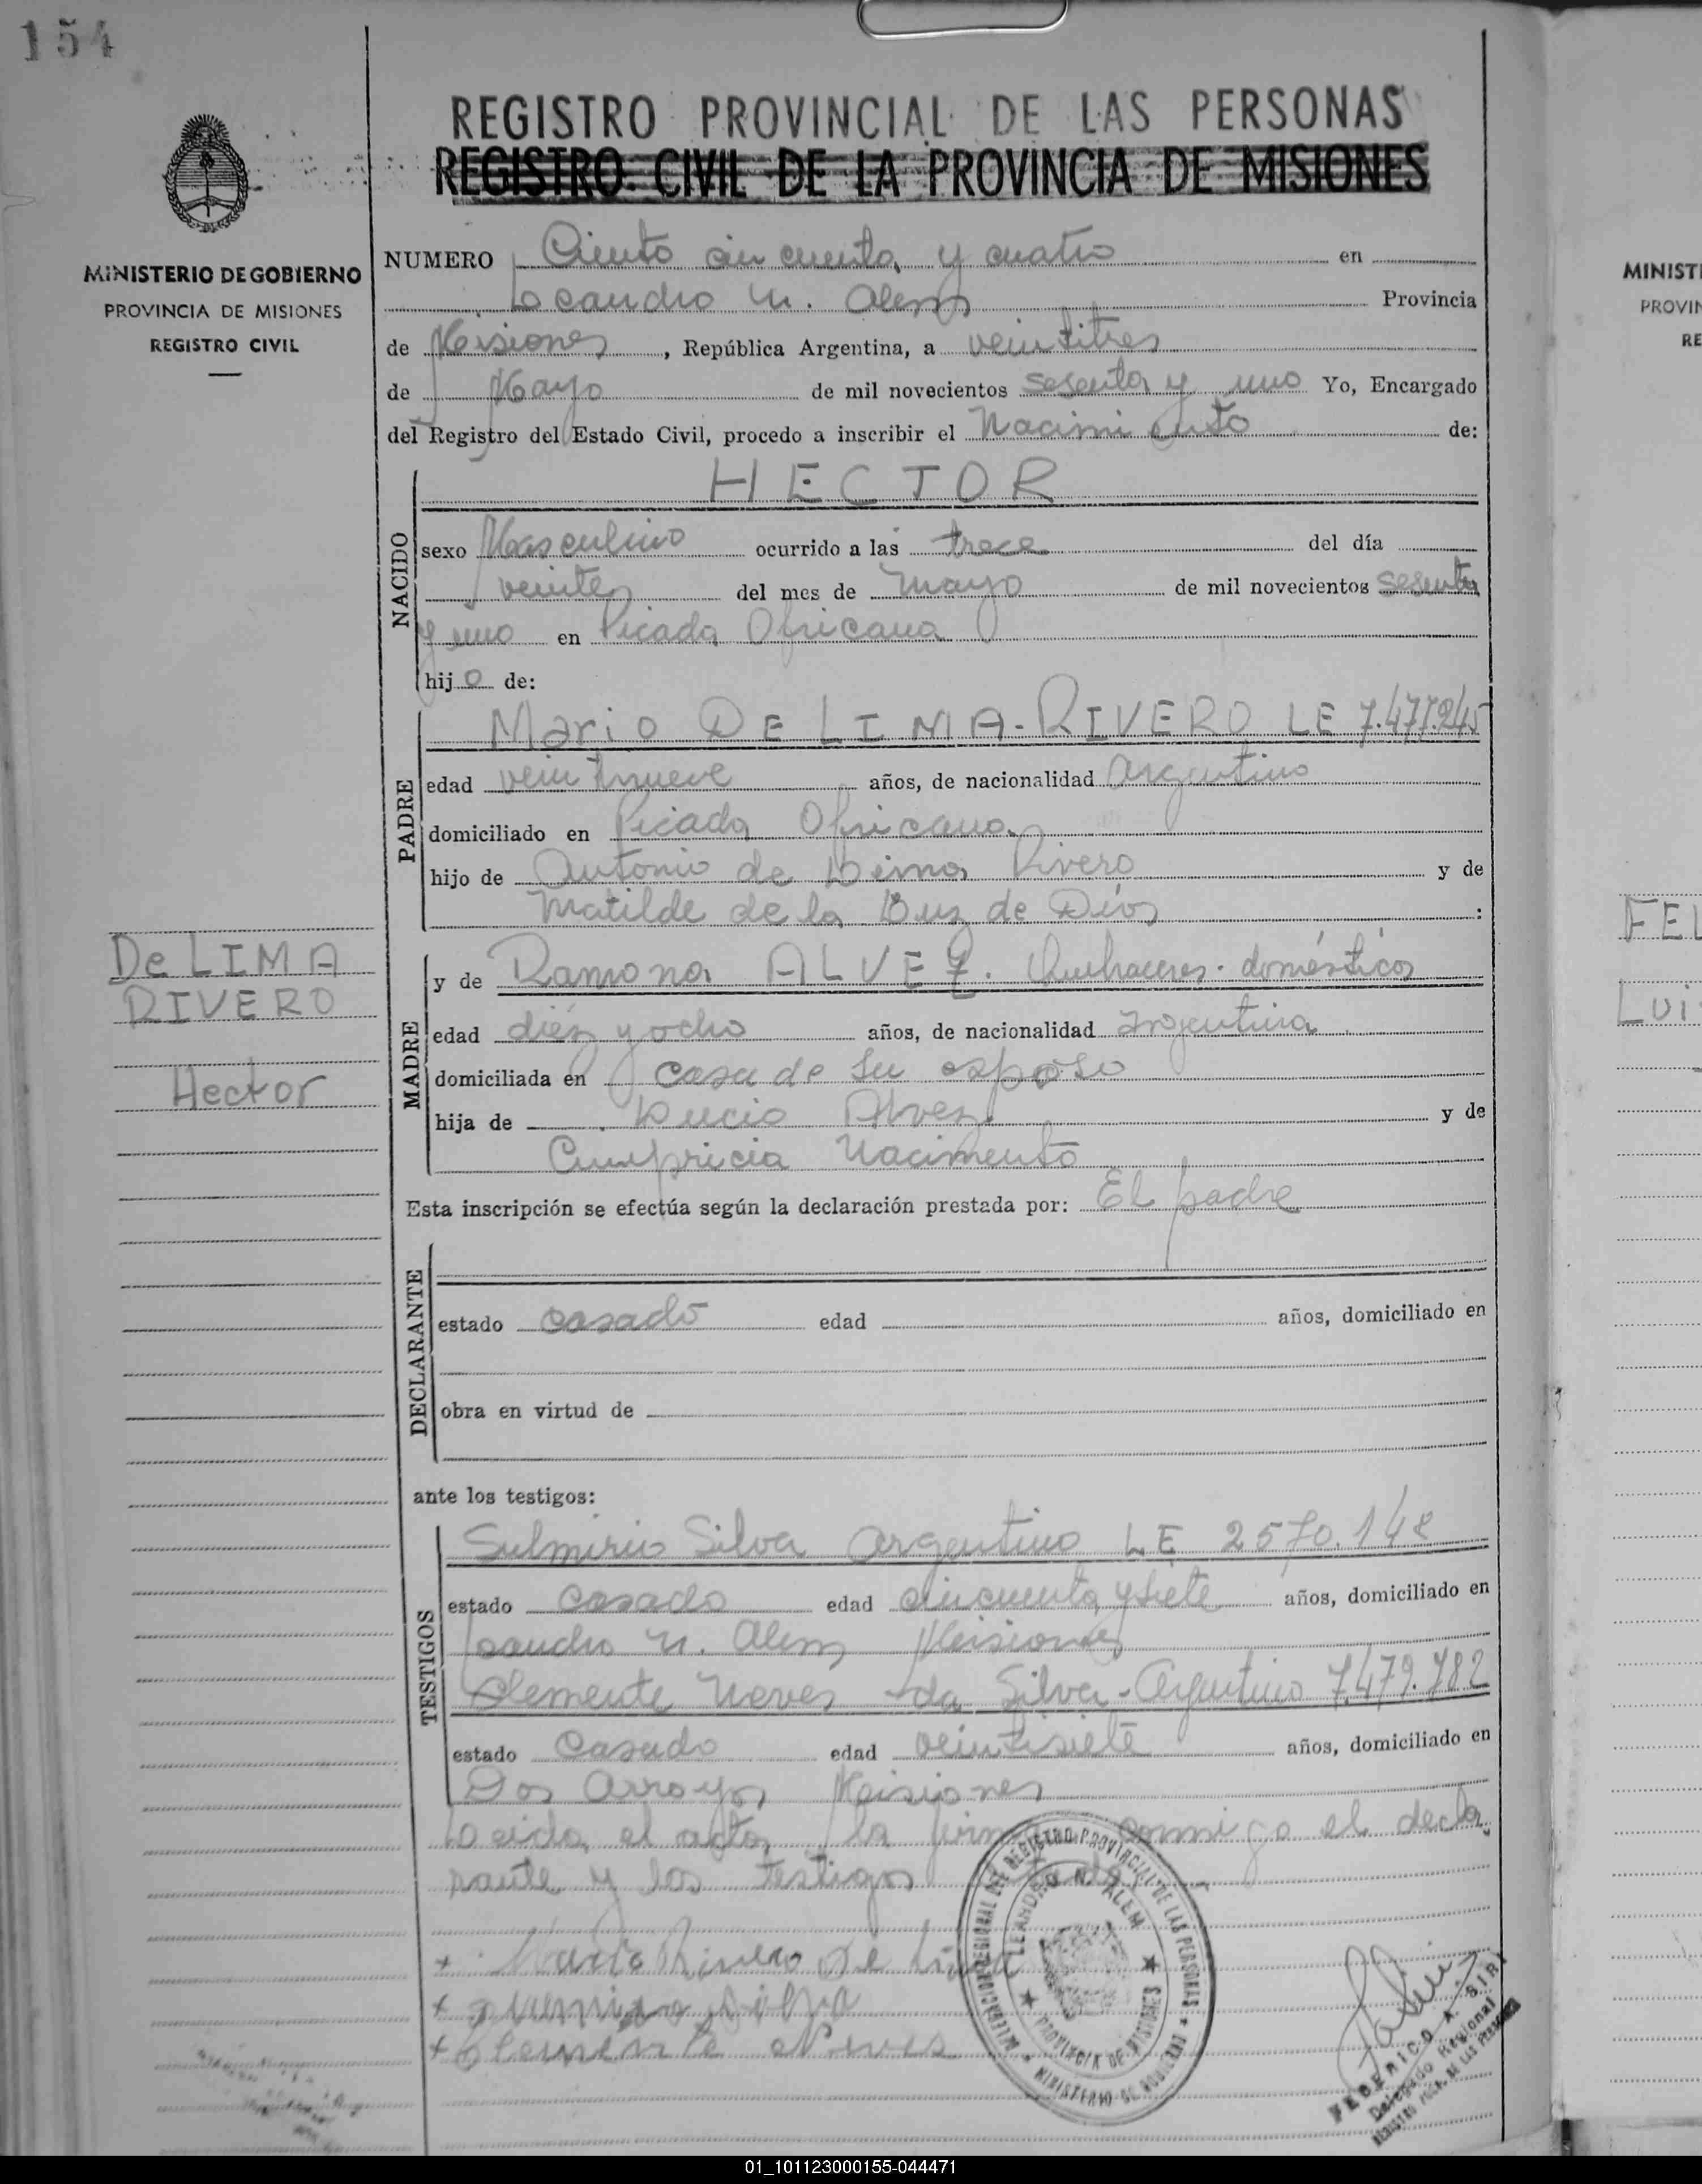 154
REGISTRO PROVINCIAL DE LAS PERSONAS
REGISTRO CIVIL DE LA PROVINCIA DE MISIONES
MINISTERIO DE GOBIERNO
PROVINCIA DE MISIONES
REGISTRO CIVIL
NUMERO Ciento cincuenta y cuatro en
Leandro N. Alem Provincia
de Misiones, República Argentina, a veintitres
de Mayo de mil novecientos sesenta y uno Yo, Encargado
del Registro del Estado Civil, procedo a inscribir el Nacimiento de:
HECTOR
NACIDO
sexo Masculino ocurrido a las trece del día
veinte del mes de mayo de mil novecientos sesenta
y uno en Picada Africana
hijo de:
PADRE
Mario DE LIMA-RIVERO LE 7.477.245
edad veintinueve años, de nacionalidad argentino
domiciliado en Picada Africana
hijo de Antonio de Lima Rivero y de
Matilde de la Luz de Dios :
MADRE
y de Ramona ALVEZ. Quehaceres domésticos
edad diez y ocho años, de nacionalidad argentina
domiciliada en casa de su esposo
hija de Lucio Alvez y de
Nacimento
Esta inscripción se efectúa según la declaración prestada por: El padre
DECLARANTE
estado casado edad años, domiciliado en
obra en virtud de
ante los testigos:
TESTIGOS
Sulmirio Silva argentino LE 2570.148
estado casado edad cincuenta y siete años, domiciliado en
Leandro N. Alem Misiones
Clemente Neves da Silva - Argentino 7.479.782
estado casado edad veintisiete años, domiciliado en
Dos Arroyos Misiones
Leida el acta, la firma conmigo el decla
rante y los testigos
+ Mario Rivero De Lima
+ Silva
+ Clemente Neves
De LIMA
RIVERO
Hector
DELEGACION REGIONAL DEL REGISTRO PROVINCIAL DE LAS PERSONAS
LEANDRO N. ALEM
PROVINCIA DE MISIONES
MINISTERIO DE GOBIERNO
FEDERICO A. SIRI
Delegado Regional
REGISTRO PROV. DE LAS PERSONAS
MINIST
PROVIN
RE
FEL
LUI
01_101123000155-044471